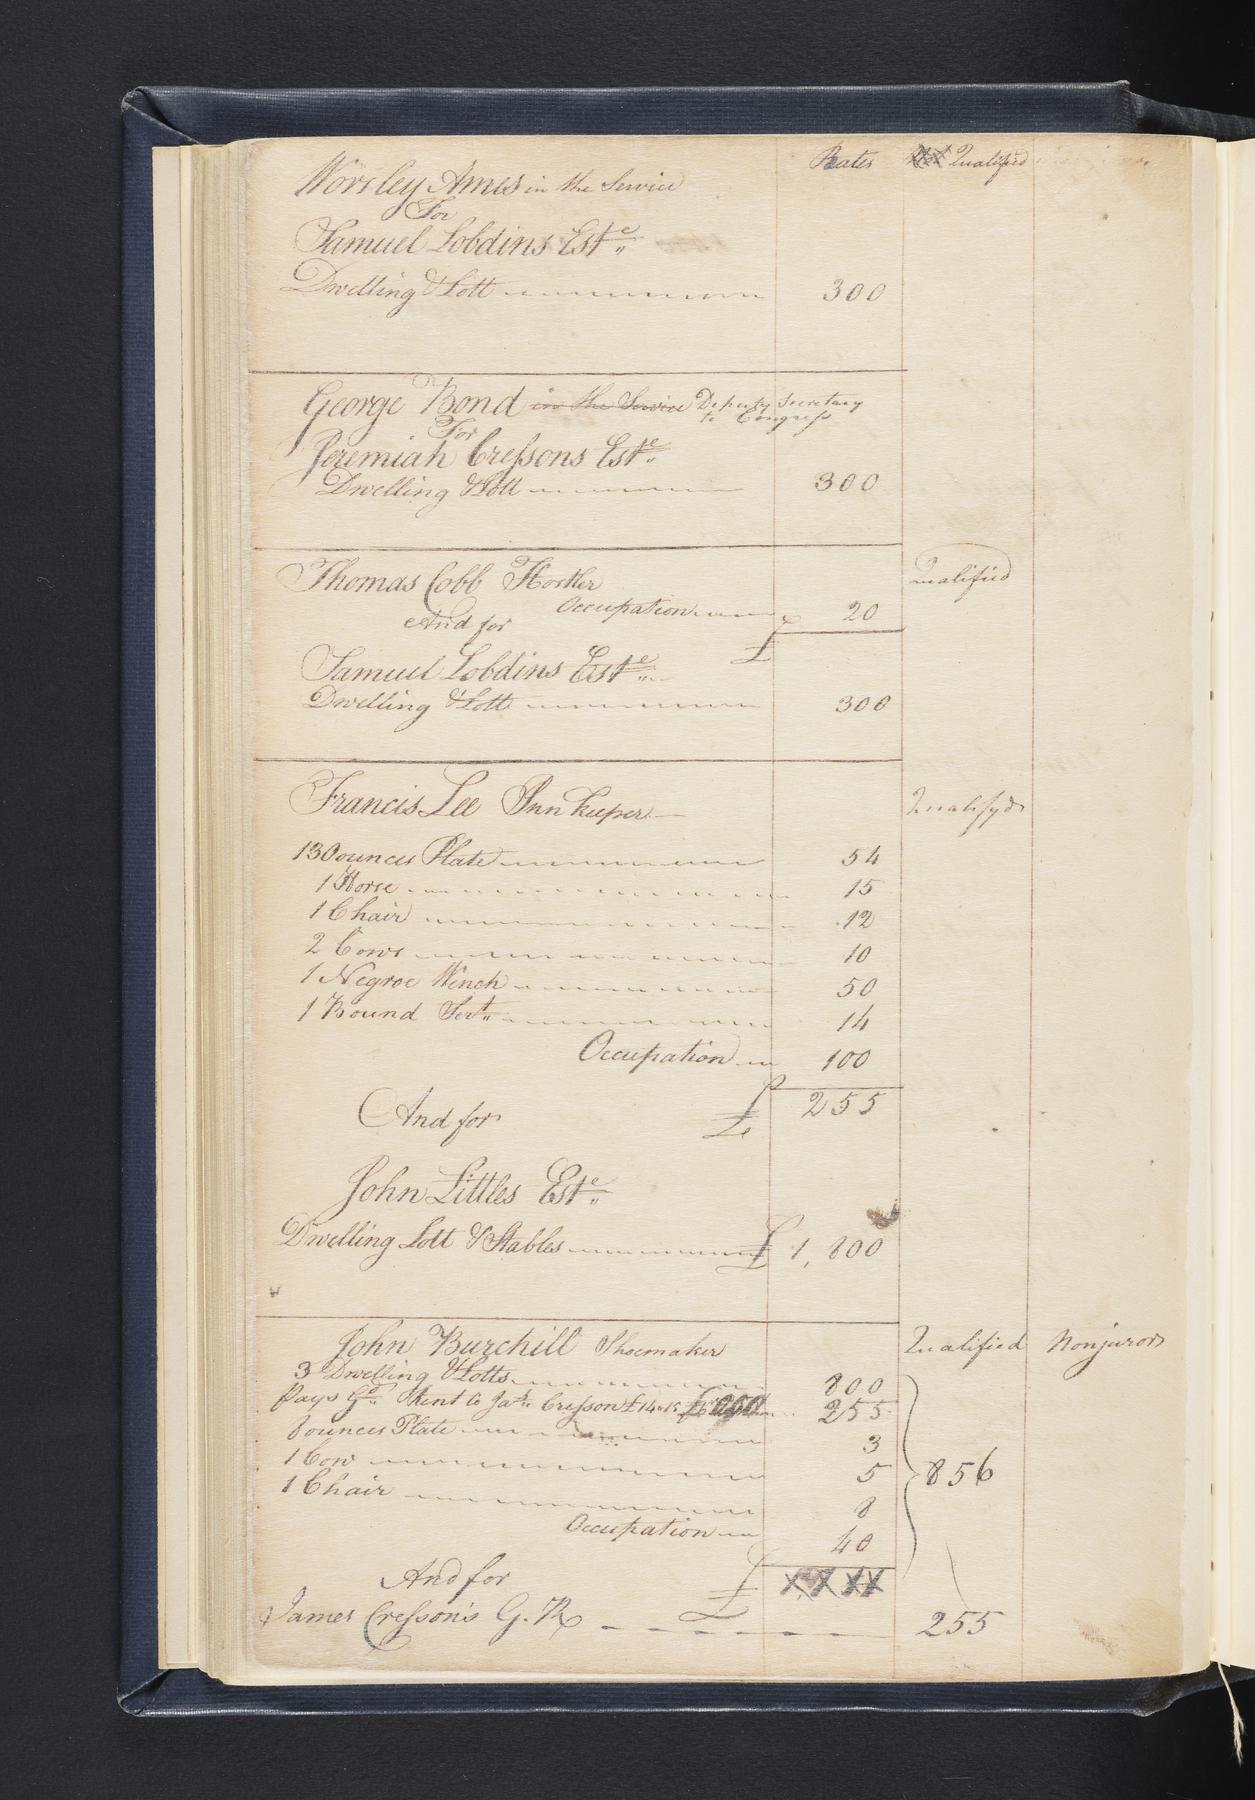 Rates Qualified
Worsley Ames in the Service
For
Samuel Lobdins Este
Dwelling & Lott 300
George Bond in the Service Deputy Secretary
to Congress
For
Jeremiah Cressons Este
Dwelling & Lott 300
Thomas Cobb Hostler Qualified
Occupation 20
And for £
Samuel Lobdins Este
Dwelling & Lott 300
Francis Lee Innkeeper Qualifyd
130 ounces Plate 54
1 Horse 15
1 Chair 12
2 Cows 10
1 Negroe Wench 50
1 Bound Servt 14
Occupation 100
And for £ 255
John Littles Este
Dwelling Lott & Stables £ 1,800
John Burchill Shoemaker Qualified Nonjuror
3 Dwelling & Lotts 800
Pays Gd Rent to Jas Cresson £14.15 255
8 ounces Plate 3
1 Cow 5 856
1 Chair 8
Occupation 40
And for £
James Cresson's G. R 255